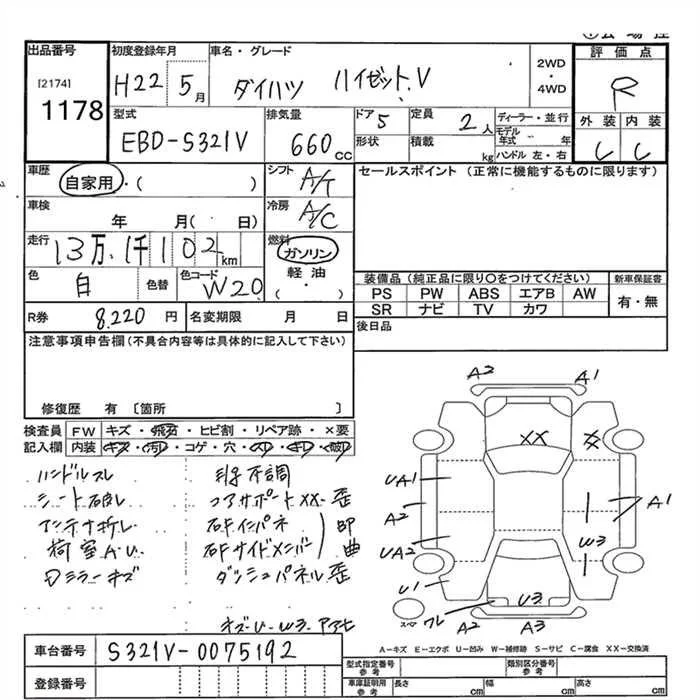 出品番号
[2174]
1178
初度登録年月
H22 5月
車名・グレード
ダイハツ ハイゼット.V
2WD
・
4WD
評価点
R
外装 内装
C C
型式
EBD-S321V
排気量
660 cc
ドア 5
形状
定員 2人
積載 kg
ディーラー・並行
モデル年式 年
ハンドル 左・右
車歴
自家用・( )
シフト A/T
車検 年 月( 日)
冷房 A/C
走行 13万.1千102 km
燃料 ガソリン・軽油・( )
色 白
色替
色コード W20
R券 8,220 円
名変期限 月 日
セールスポイント (正常に機能するものに限ります)
装備品(純正品に限り○をつけてください)
PS PW ABS エアB AW
SR ナビ TV カワ
新車保証書
有・無
後日品
注意事項申告欄(不具合内容等は具体的に記入して下さい)
修復歴 有 [箇所 ]
検査員記入欄
FW キズ・飛石・ヒビ割・リペア跡・×要
内装 キズ・汚レ・コゲ・穴・スレ・キレ・破レ
ハンドルスレ
シート破レ
アンテナ折レ
荷室A.U
Dミラーキズ
コアサポートXX-歪
右Fインパネ
右Fサイドメンバー
曲
ダッシュパネル歪
キズ・U-W3-
A2 A1
XX
UA1
A2
UA2
U1
A1
W3
U3
ワレ
スペア
A2 A3
A-キズ E-エクボ U-凹み W-補修跡 S-サビ C-腐食 XX-交換済
車台番号 S321V-0075192
登録番号
型式指定番号 参考
類別区分番号 参考
車庫証明用 参考
長さ cm
幅 cm
高さ cm